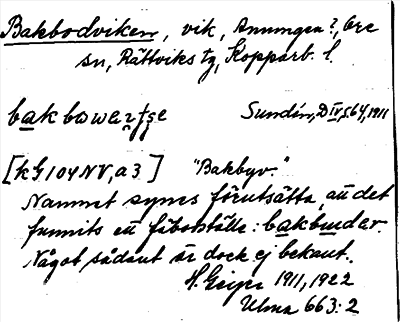 Bakbodviken, vik, Anungen?, Ore
sn, Rättviks tg, Kopparb. l.
Sundén, D IV, s. 64, 1911
[kG104NV, a3] "Bakbyv."
Namnet synes förutsätta, att det
funnits ett fäbotställe: bakbudar.
Något sådant är dock ej bekant.
H. Geijer 1911, 1922
Ulma 663:2